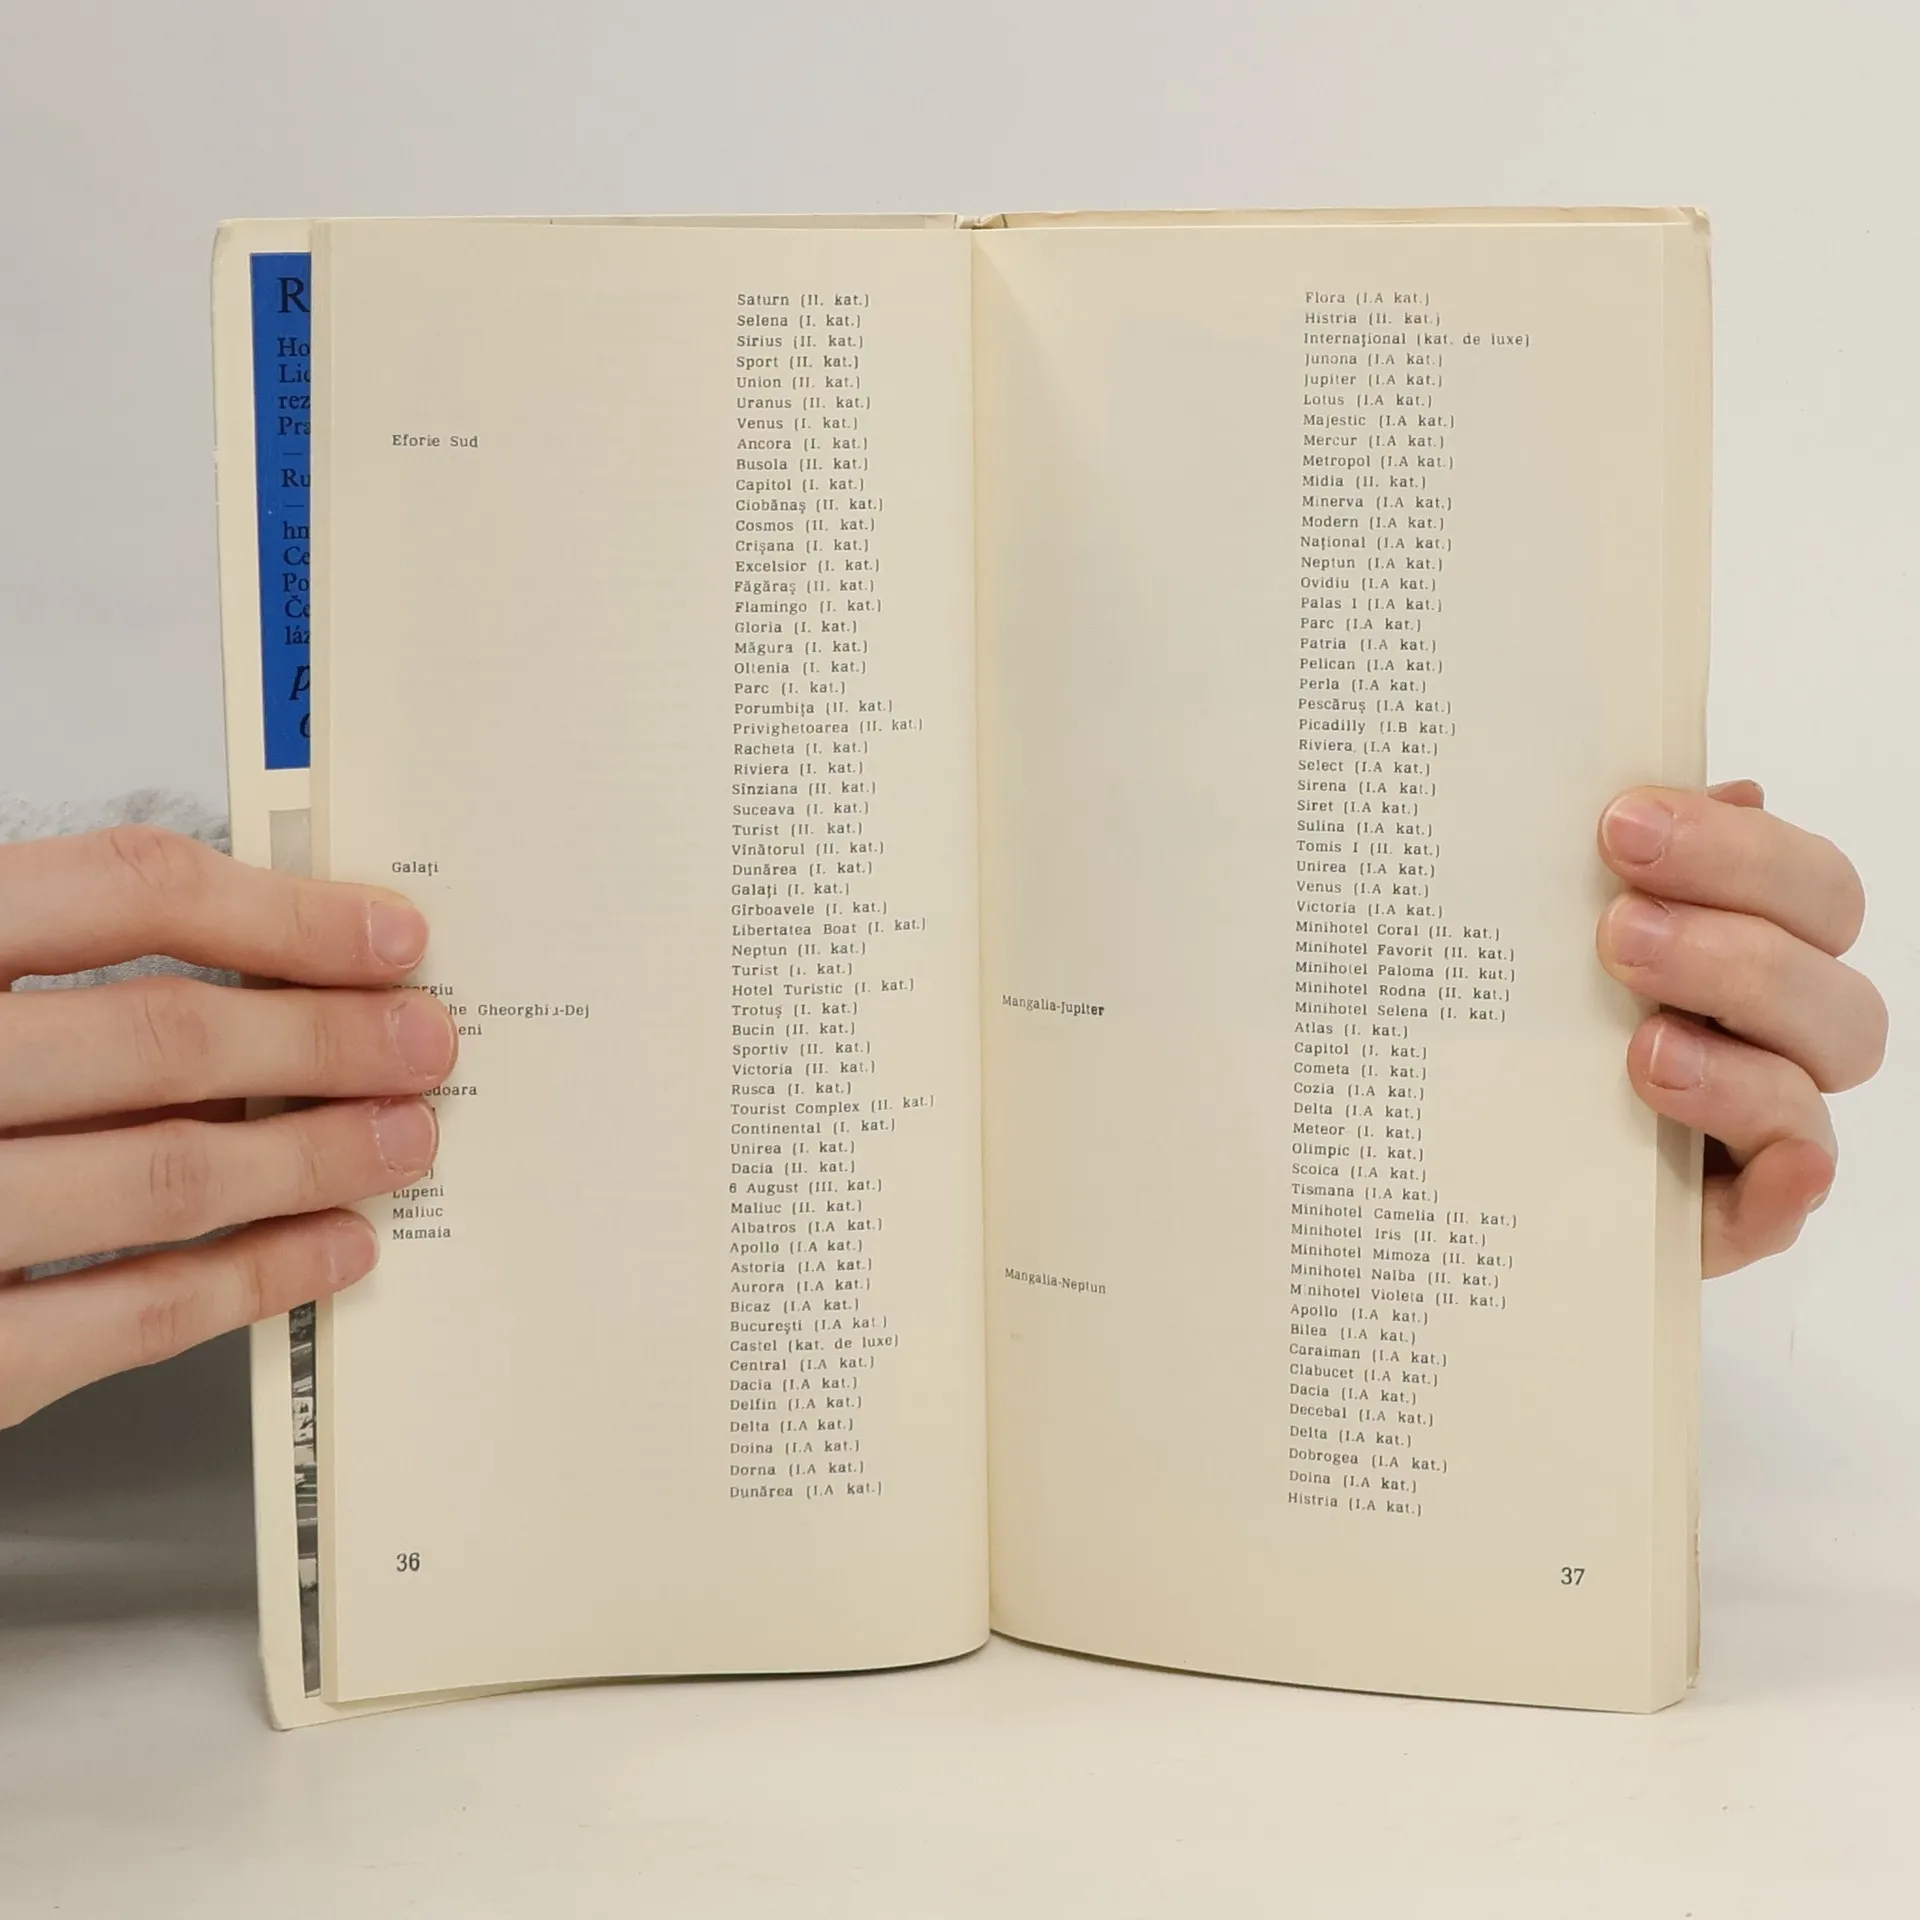 R
Ho
Lic
rez
Pra
Ru
hn
Ce
Po
Če
láz
p
Saturn (II. kat.)
Selena (I. kat.)
Sirius (II. kat.)
Sport (II. kat.)
Union (II. kat.)
Uranus (II. kat.)
Venus (I. kat.)
Eforie Sud Ancora (I. kat.)
Busola (II. kat.)
Capitol (I. kat.)
Ciobănaş (II. kat.)
Cosmos (II. kat.)
Crişana (I. kat.)
Excelsior (I. kat.)
Făgăraş (II. kat.)
Flamingo (I. kat.)
Gloria (I. kat.)
Măgura (I. kat.)
Oltenia (I. kat.)
Parc (I. kat.)
Porumbiţa (II. kat.)
Privighetoarea (II. kat.)
Racheta (I. kat.)
Riviera (I. kat.)
Sînziana (II. kat.)
Suceava (I. kat.)
Turist (II. kat.)
Vînătorul (II. kat.)
Galaţi Dunărea (I. kat.)
Galaţi (I. kat.)
Gîrboavele (I. kat.)
Libertatea Boat (I. kat.)
Neptun (II. kat.)
Turist (I. kat.)
Hotel Turistic (I. kat.)
he Gheorghiu-Dej Trotuş (I. kat.)
eni Bucin (II. kat.)
Sportiv (II. kat.)
Victoria (II. kat.)
edoara Rusca (I. kat.)
Tourist Complex (II. kat.)
Continental (I. kat.)
Unirea (I. kat.)
Dacia (II. kat.)
Lupeni 6 August (III. kat.)
Maliuc Maliuc (II. kat.)
Mamaia Albatros (I.A kat.)
Apollo (I.A kat.)
Astoria (I.A kat.)
Aurora (I.A kat.)
Bicaz (I.A kat.)
Bucureşti (I.A kat.)
Castel (kat. de luxe)
Central (I.A kat.)
Dacia (I.A kat.)
Delfin (I.A kat.)
Delta (I.A kat.)
Doina (I.A kat.)
Dorna (I.A kat.)
Dunărea (I.A kat.)
36
Flora (I.A kat.)
Histria (II. kat.)
Internaţional (kat. de luxe)
Junona (I.A kat.)
Jupiter (I.A kat.)
Lotus (I.A kat.)
Majestic (I.A kat.)
Mercur (I.A kat.)
Metropol (I.A kat.)
Midia (II. kat.)
Minerva (I.A kat.)
Modern (I.A kat.)
Naţional (I.A kat.)
Neptun (I.A kat.)
Ovidiu (I.A kat.)
Palas 1 (I.A kat.)
Parc (I.A kat.)
Patria (I.A kat.)
Pelican (I.A kat.)
Perla (I.A kat.)
Pescăruş (I.A kat.)
Picadilly (I.B kat.)
Riviera (I.A kat.)
Select (I.A kat.)
Sirena (I.A kat.)
Siret (I.A kat.)
Sulina (I.A kat.)
Tomis I (II. kat.)
Unirea (I.A kat.)
Venus (I.A kat.)
Victoria (I.A kat.)
Minihotel Coral (II. kat.)
Minihotel Favorit (II. kat.)
Minihotel Paloma (II. kat.)
Minihotel Rodna (II. kat.)
Minihotel Selena (I. kat.)
Mangalia-Jupiter Atlas (I. kat.)
Capitol (I. kat.)
Cometa (I. kat.)
Cozia (I.A kat.)
Delta (I.A kat.)
Meteor (I. kat.)
Olimpic (I. kat.)
Scoica (I.A kat.)
Tismana (I.A kat.)
Minihotel Camelia (II. kat.)
Minihotel Iris (II. kat.)
Minihotel Mimoza (II. kat.)
Minihotel Nalba (II. kat.)
Minihotel Violeta (II. kat.)
Mangalia-Neptun Apollo (I.A kat.)
Bilea (I.A kat.)
Caraiman (I.A kat.)
Clabucet (I.A kat.)
Dacia (I.A kat.)
Decebal (I.A kat.)
Delta (I.A kat.)
Dobrogea (I.A kat.)
Doina (I.A kat.)
Histria (I.A kat.)
37